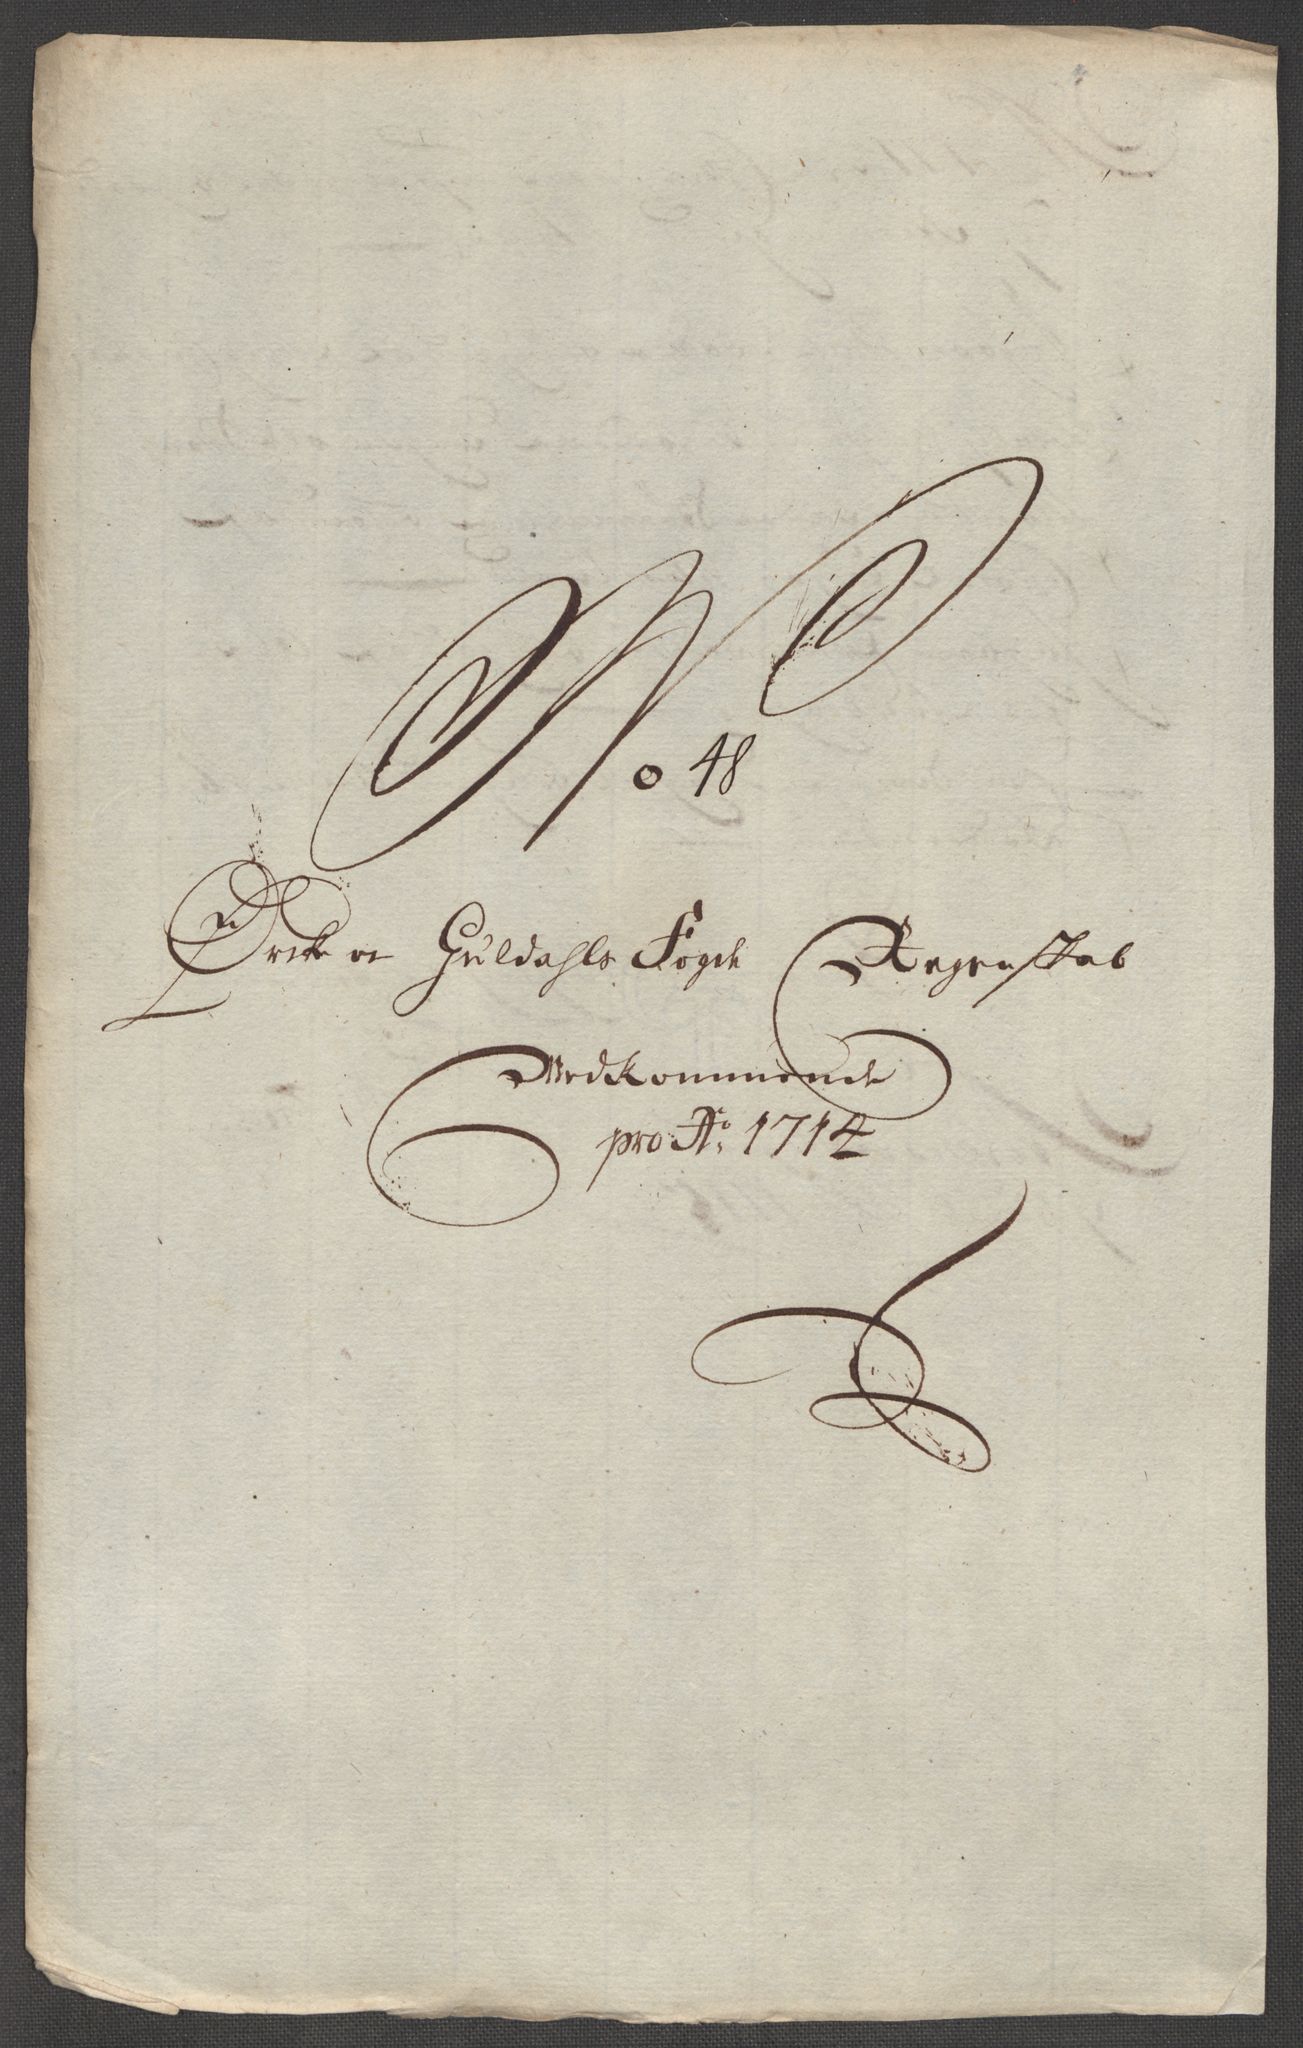 No 48
Örcke oc Guldahls Fogde Regenskab
Vedkommende
pro Ao: 1714